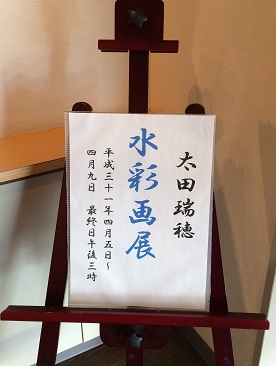 太田瑞穂
水彩画展
平成三十一年四月五日～
四月九日 最終日午後三時